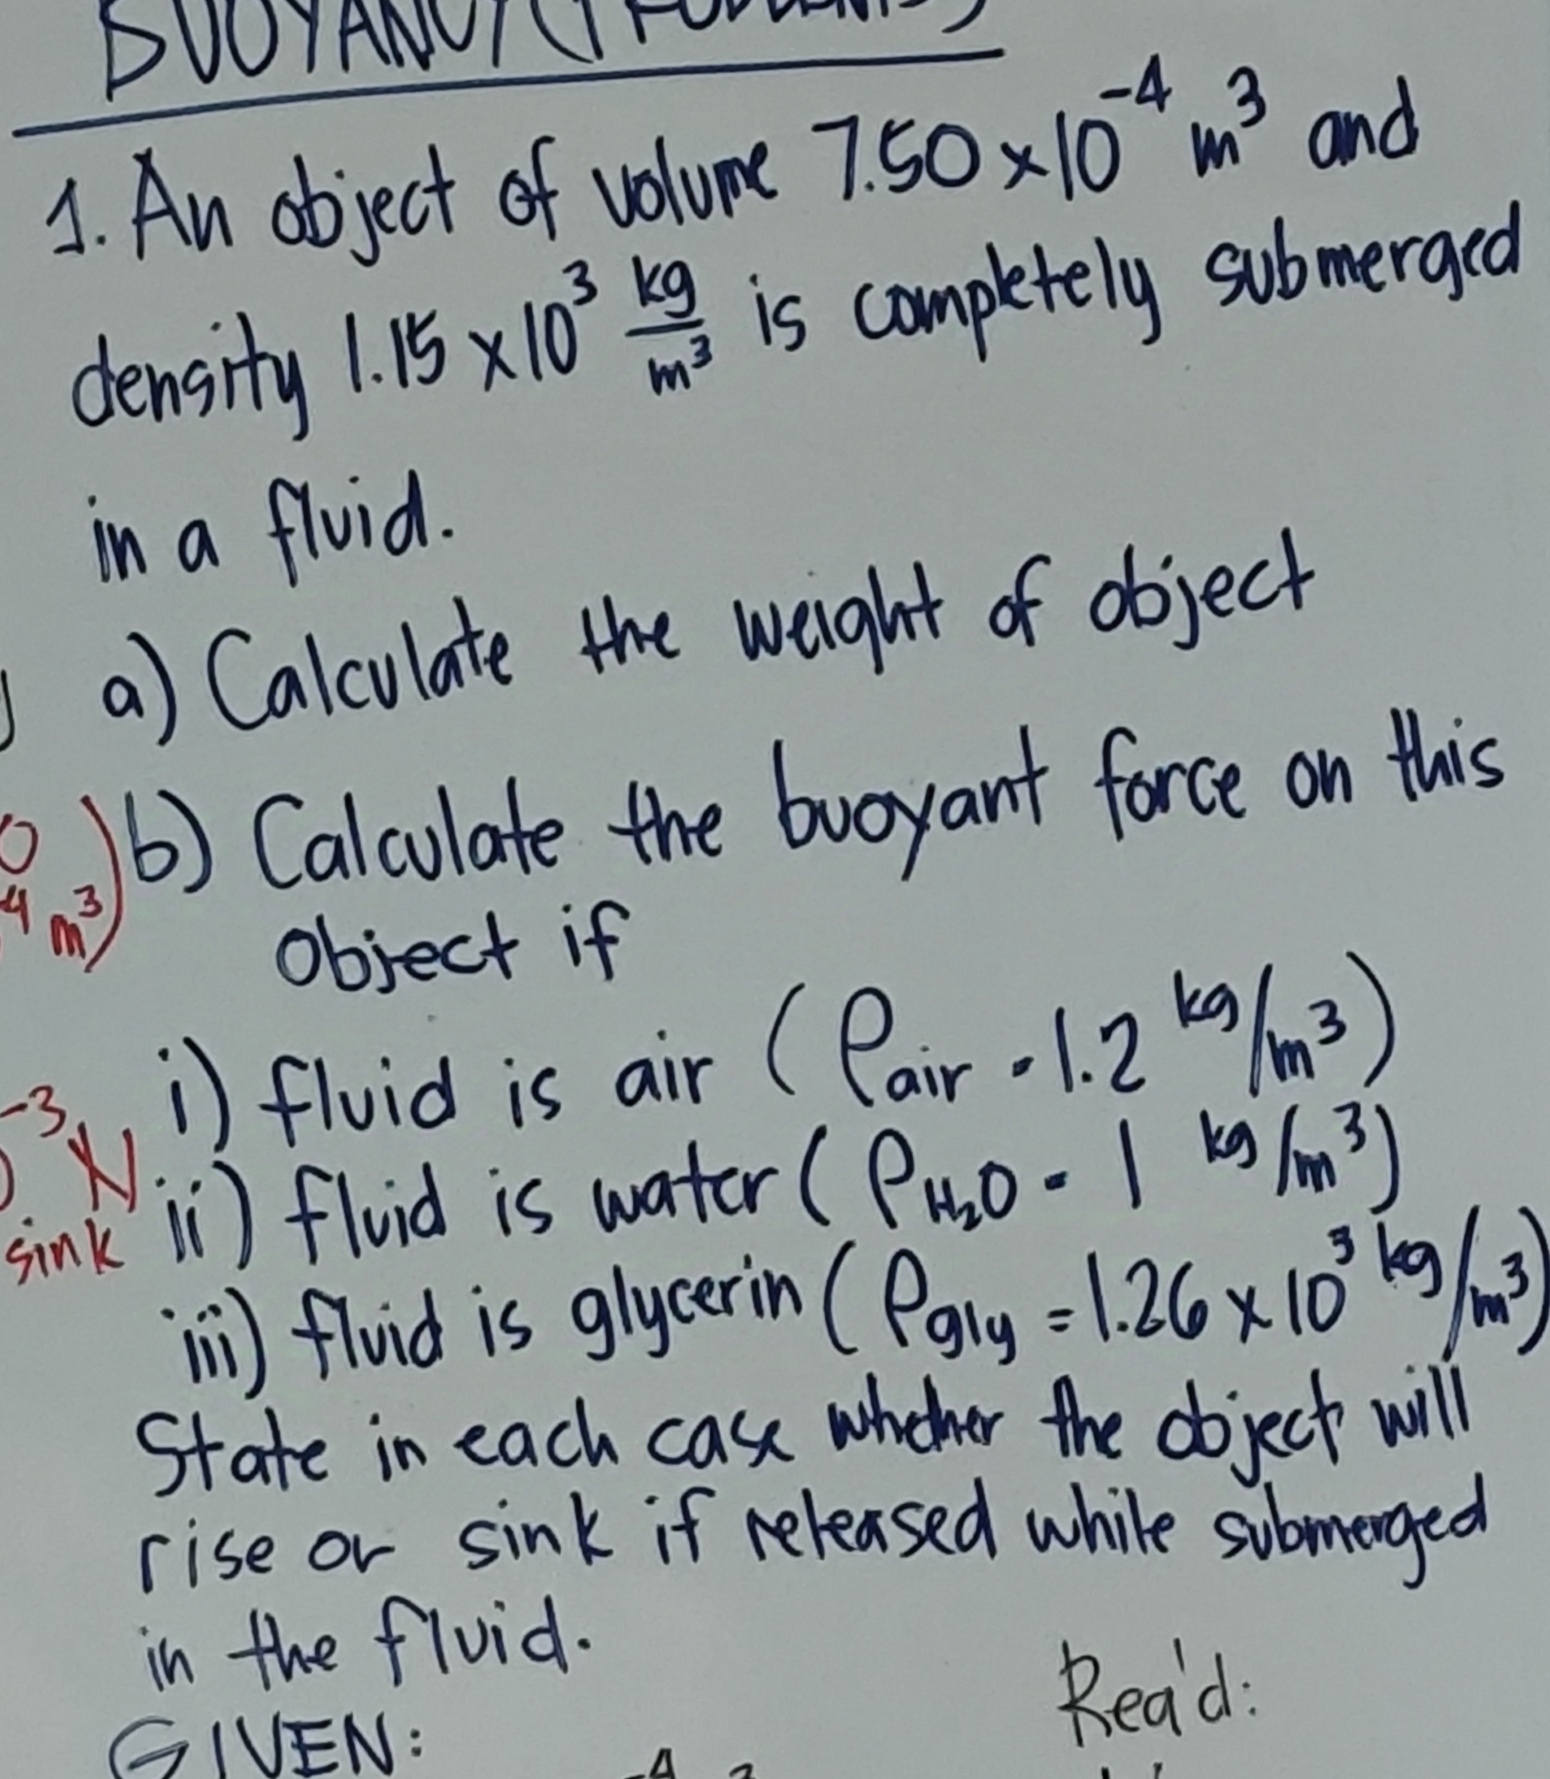 BUOYANCY (PROBLEMS)
1. An object of volume 7.50 x 10⁻⁴ m³ and
density 1.15 x 10³ kg/m³ is completely submerged
in a fluid.
a) Calculate the weight of object
b) Calculate the buoyant force on this
Object if
i) fluid is air (ρair - 1.2 kg/m³)
ii) fluid is water (ρH₂O - 1 kg/m³)
iii) fluid is glycerin (ρgly = 1.26 x 10³ kg/m³)
State in each case whether the object will
rise or sink if released while submerged
in the fluid.
GIVEN:
Req'd:
0
-4 m³)
-3 N
sink